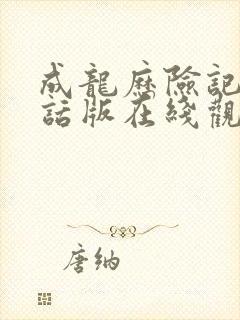 成龍歷險記
話版在綫觀
唐纳